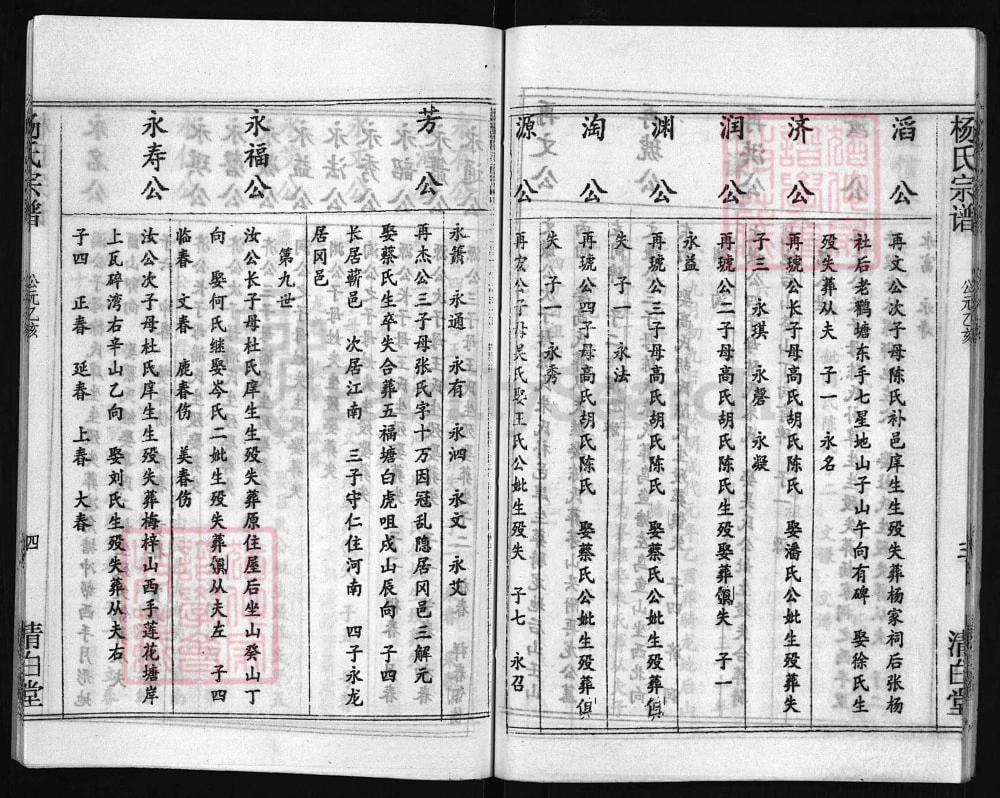 杨氏宗谱
公元乙亥
三
清白堂
滔公
再文公次子母陈氏补邑庠生生殁失葬杨家祠后张杨
社后老鹳塘东手七星地山子山午向有碑 娶徐氏生
殁失葬从夫 子一 永名
济公
再琥公长子母高氏胡氏陈氏 娶潘氏公妣生殁葬失
子三 永琪 永磬 永凝
润公
再琥公二子母高氏胡氏陈氏生殁娶葬俱失 子一
永益
渊公
再琥公三子母高氏胡氏陈氏 娶蔡氏公妣生殁葬俱
失 子一 永法
淘公
再琥公四子母高氏胡氏陈氏 娶蔡氏公妣生殁葬俱
失 子 永秀
源公
再宏公 子母吴氏娶王氏公妣生殁失 子七 永召
永箫 永通 永有 永泗 永文 永艾
芳公
再杰公三子母张氏字十万因冠乱隐居冈邑三解元
娶蔡氏生卒失合葬五福塘白虎咀戌山辰向 子四
长居蕲邑 次居江南 三子守仁住河南 四子永龙
居冈邑
第九世
永福公
汝公长子母杜氏庠生生殁失葬原住屋后坐山癸山丁
向 娶何氏继娶岑氏二妣生殁失葬俱从夫左 子四
临春 文春 鹿春伤 美春伤
永寿公
汝公次子母杜氏庠生生殁失葬梅梓山西手莲花塘岸
上瓦碎湾右辛山乙向 娶刘氏生殁失葬从夫右
子四 正春 延春 上春 大春
杨氏宗谱
公元乙亥
四
清白堂